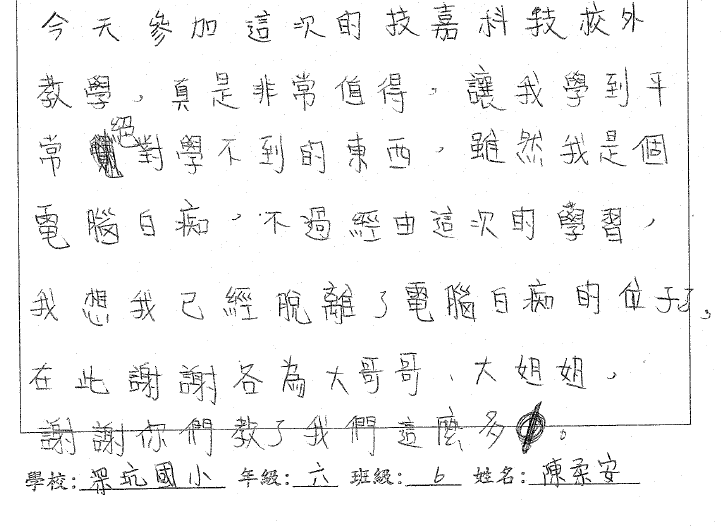 今天參加這次的技嘉科技校外
教學，真是非常值得，讓我學到平
常絕對學不到的東西，雖然我是個
電腦白痴，不過經由這次的學習，
我想我已經脫離了電腦白痴的位子了。
在此謝謝各為大哥哥、大姐姐，
謝謝你們教了我們這麼多。
學校：深坑國小 年級：六 班級：6 姓名：陳柔安